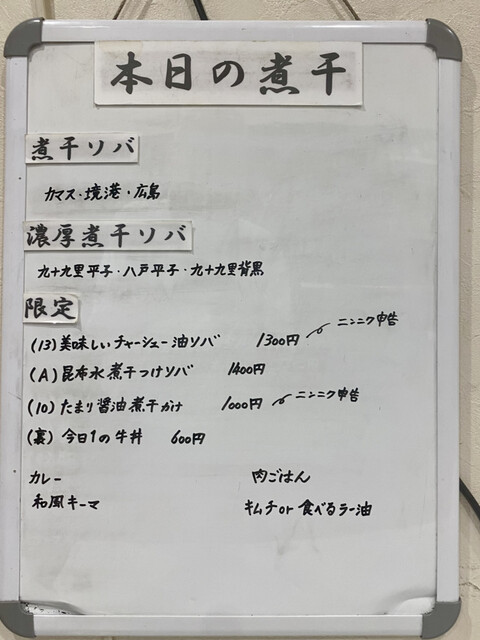 本日の煮干
煮干ソバ
カマス・境港・広島
濃厚煮干ソバ
九十九里平子・八戸平子・九十九里背黒
限定
(13) 美味しいチャーシュー油ソバ 1300円 ニンニク申告
(A) 昆布水煮干つけソバ 1400円
(10) たまり醤油煮干かけ 1000円 ニンニク申告
(裏) 今日1の牛丼 600円
カレー 肉ごはん
和風キーマ キムチor食べるラー油